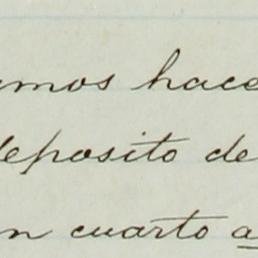 amos hace
deposito de
un cuarto a